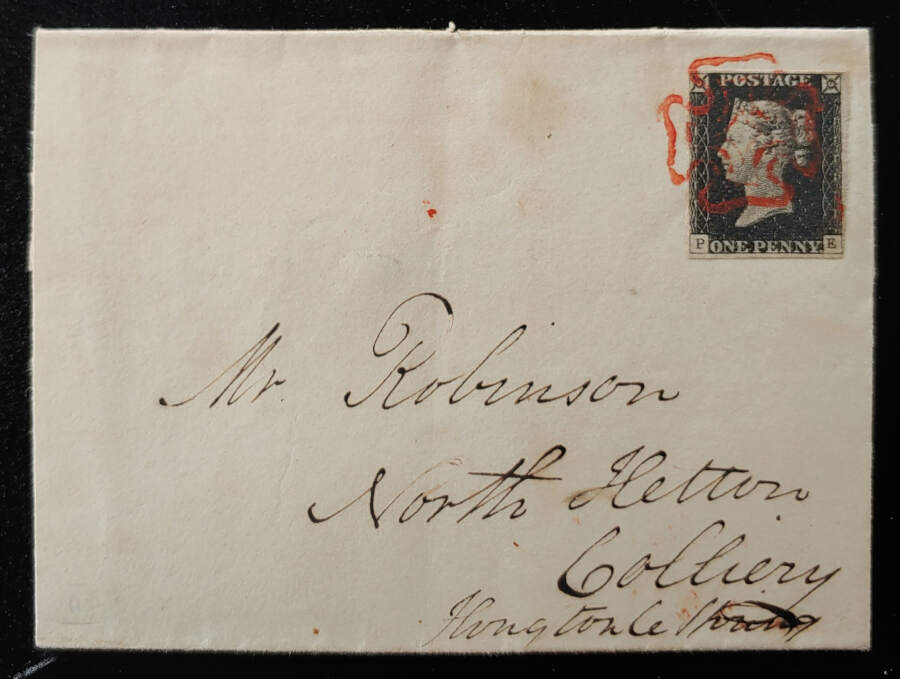 POSTAGE
P ONE PENNY E
Mr. Robinson
North Hetton
Colliery
Hougton le Spring